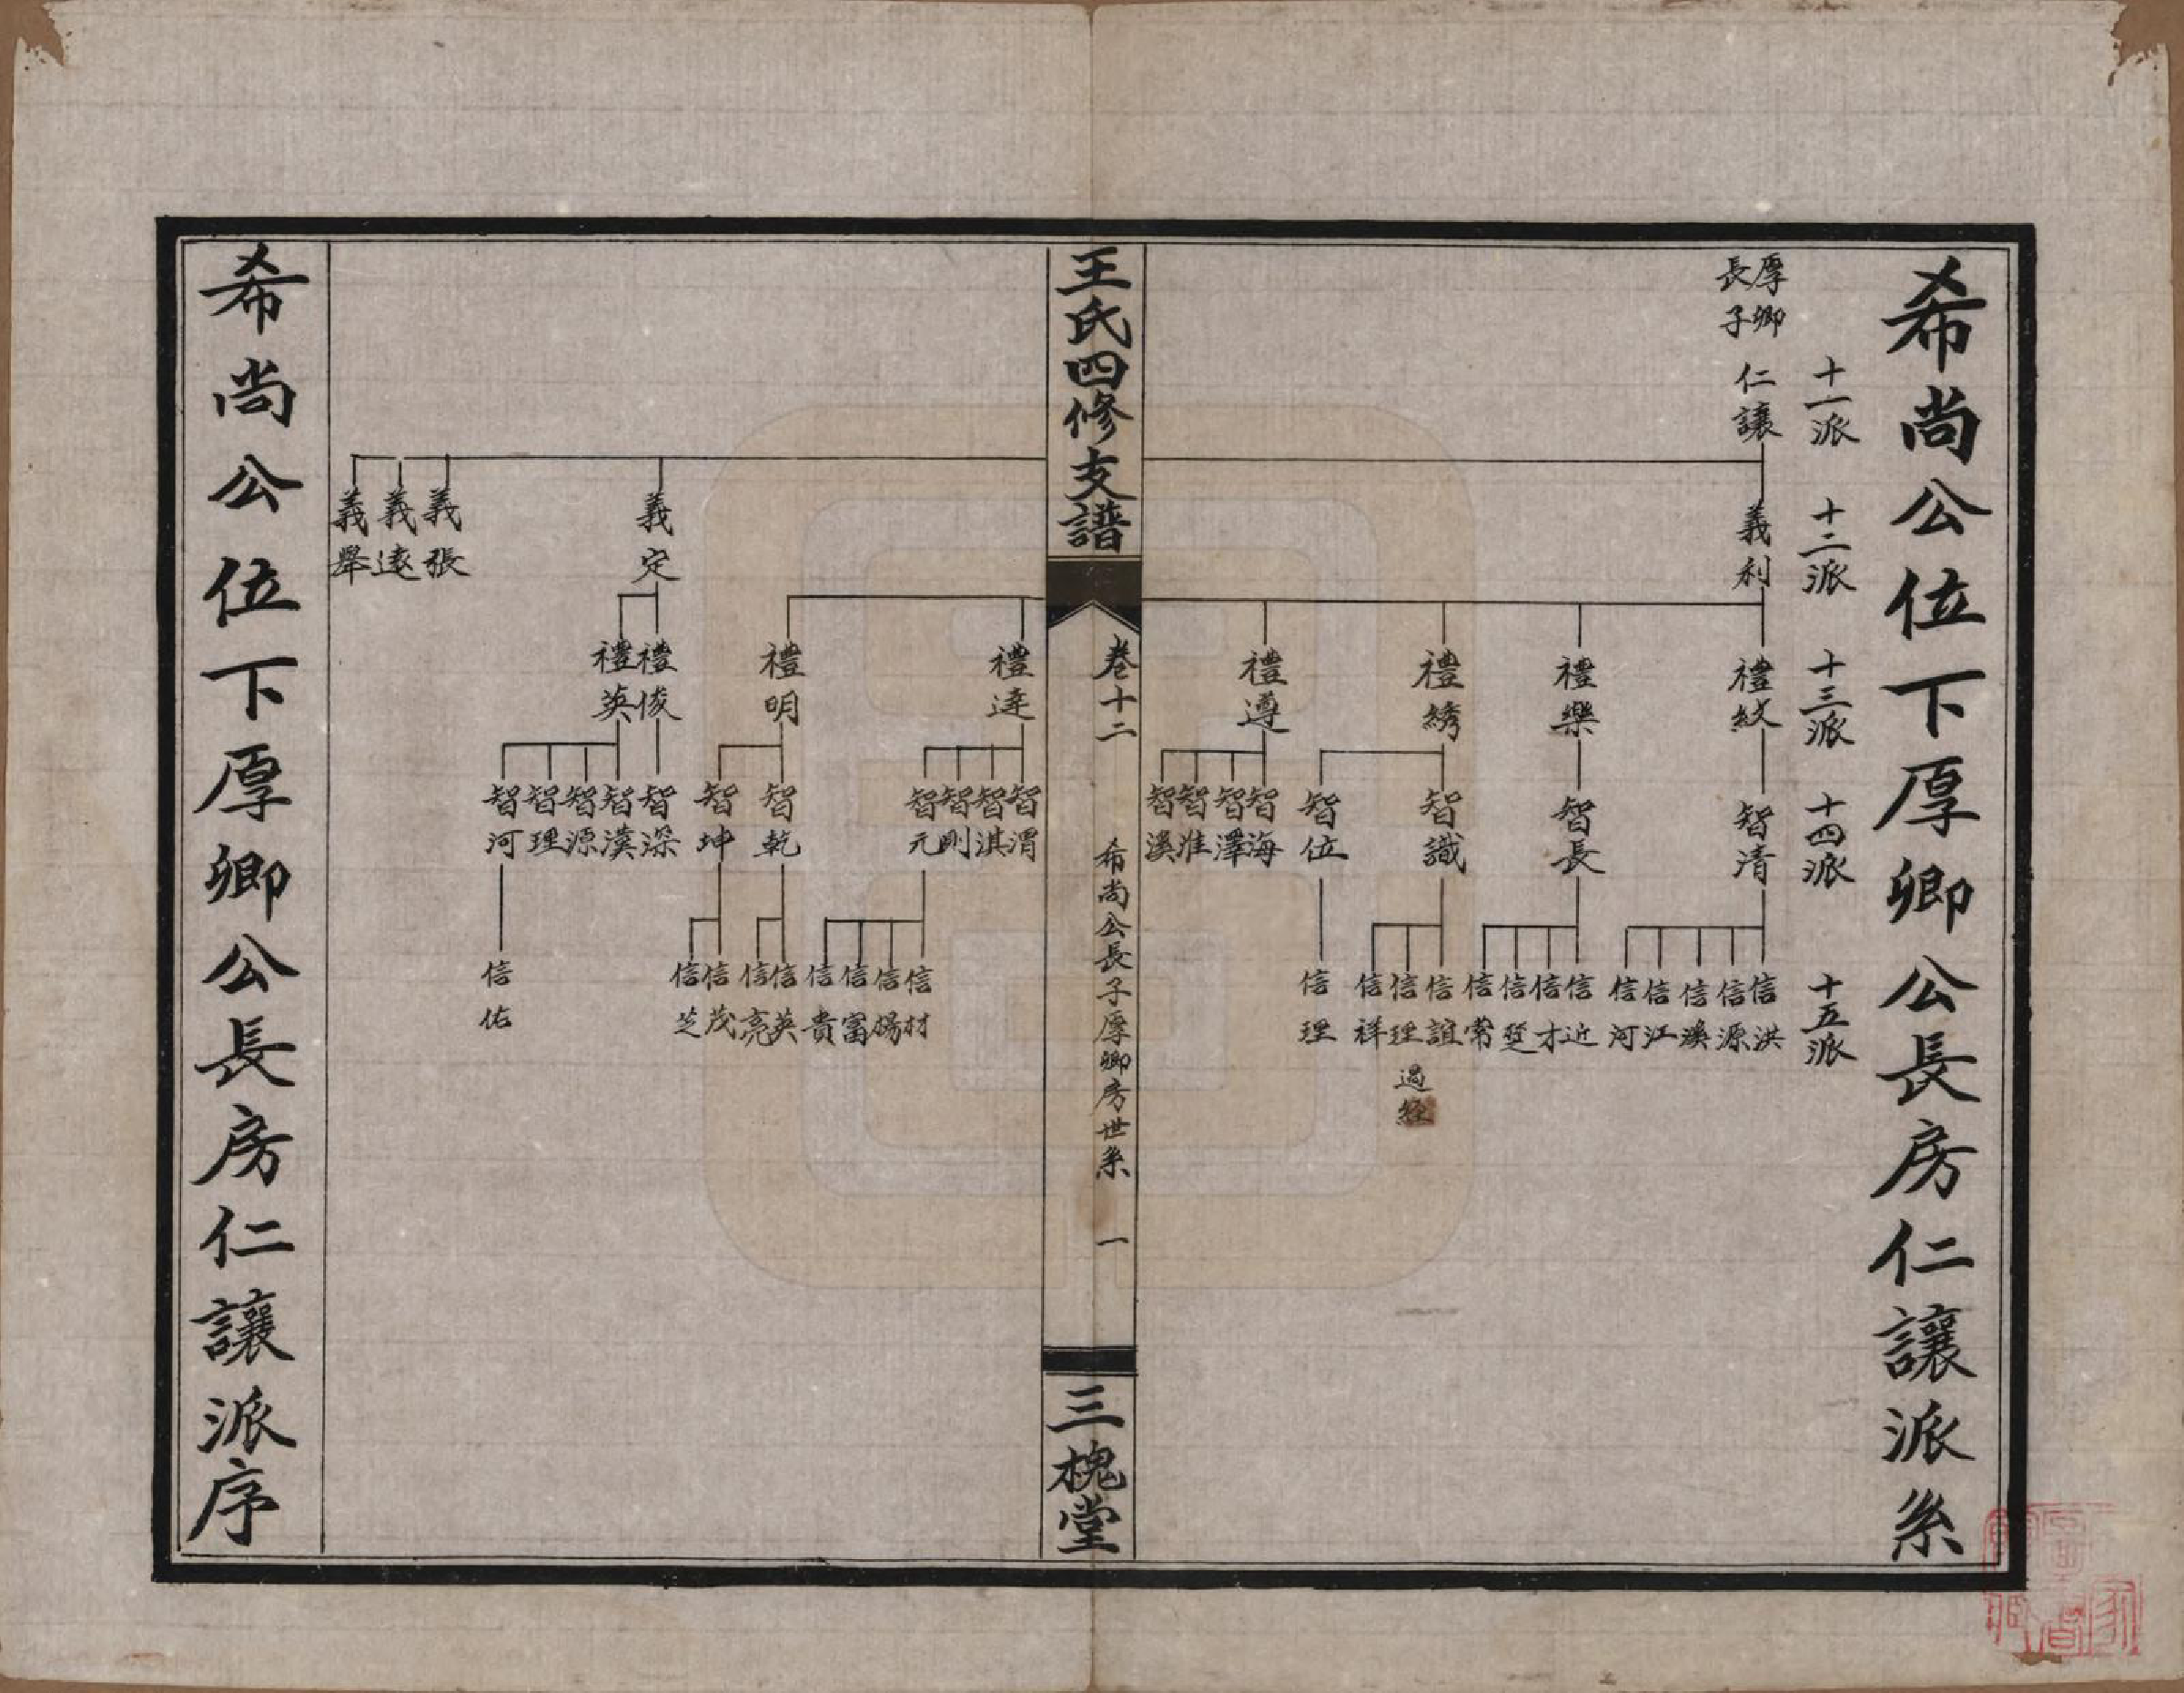 希尚公位下厚卿公長房仁讓派系
十一派
十二派
十三派
十四派
十五派
厚卿
長子
仁讓
義利
禮紋
禮樂
禮綉
禮遵
智清
智長
智識
智位
智海
智澤
智淮
智溪
信洪
信源
信溪
信江
信河
信近
信才
信楚
信常
信誼
信理
過経
信祥
信理
王氏四修支譜
卷十二
希尚公長子厚卿房世系
一
三槐堂
禮達
禮明
智渭
智淇
智剛
智元
智乾
智坤
信材
信楊
信富
信貴
信英
信亮
信茂
信芝
義定
禮俊
禮英
智深
智漢
智源
智理
智河
信佑
義張
義遠
義舉
希尚公位下厚卿公長房仁讓派序